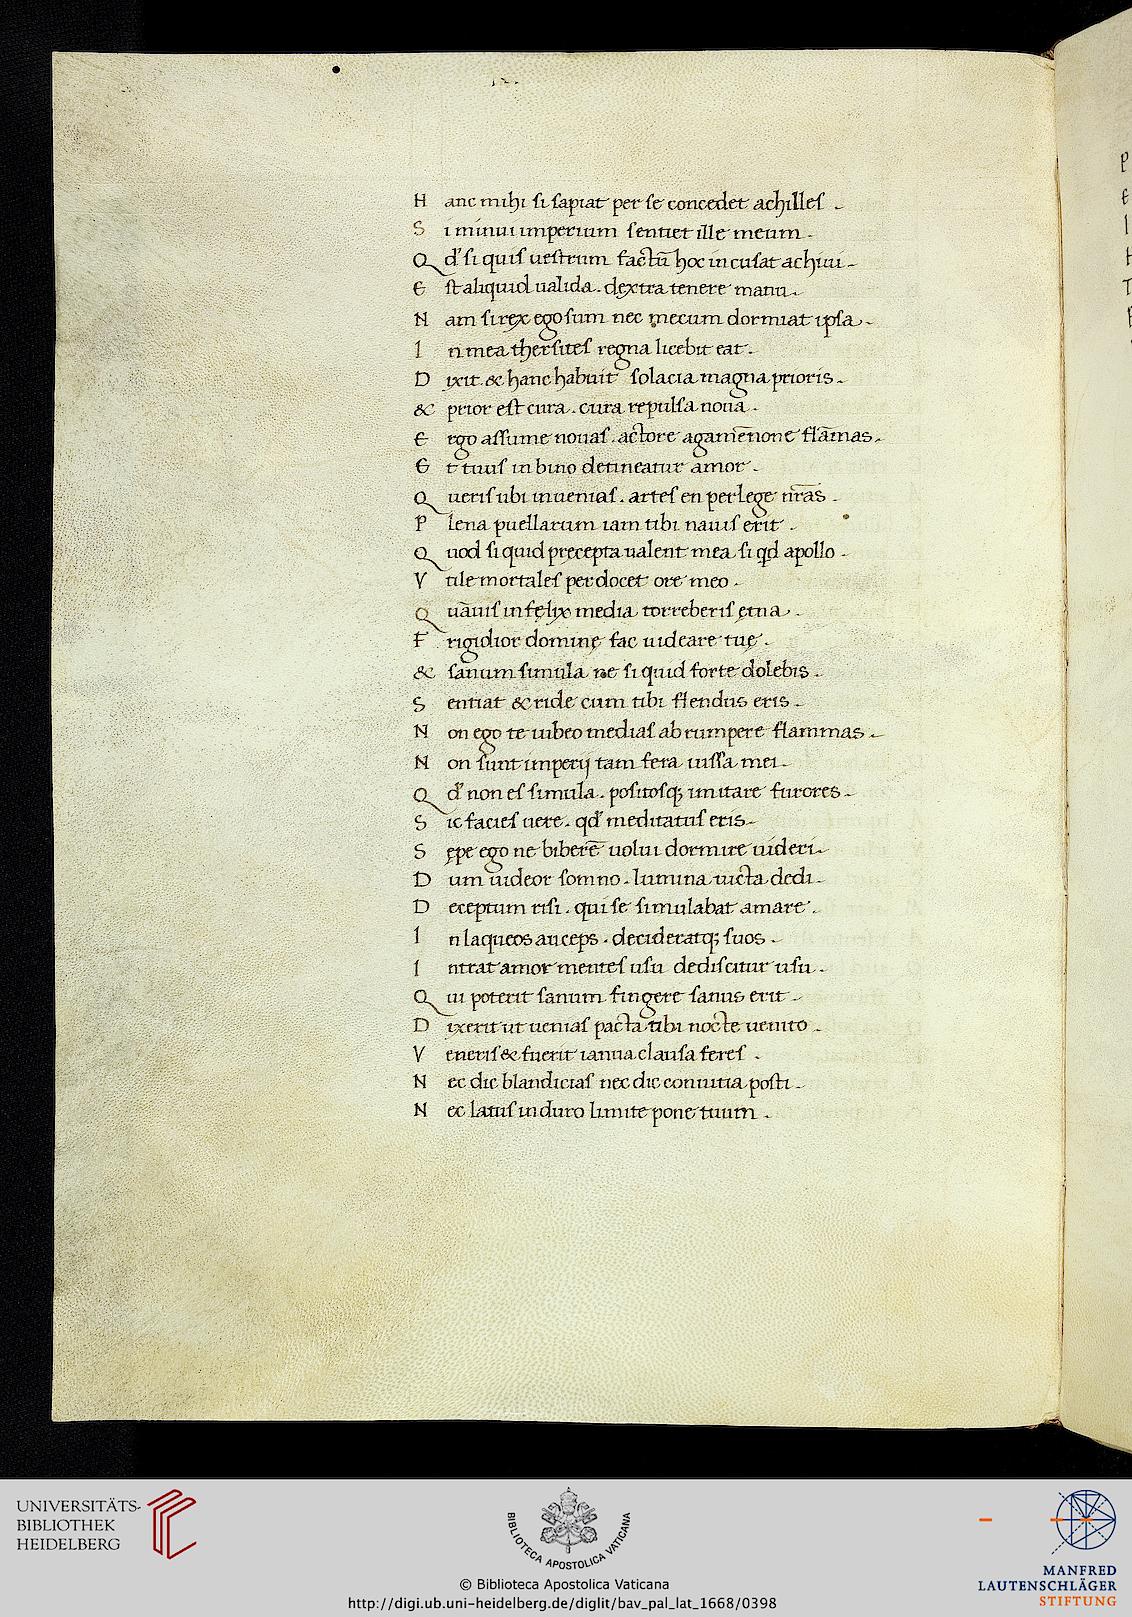 H anc mihi si sapiat per se concedet achilles .
S i minui imperium sentiet ille meum .
Q d' si quis uestrum factũ hoc incusat achiui .
E st aliquid ualida . dextra tenere manu .
N am si rex ego sum nec mecum dormiat ipsa .
I n mea thersites regna licebit eat .
D ixit & hanc habuit solacia magna prioris .
& prior est cura . cura repulsa noua .
E rgo assume nouas . actore agamẽnone flãmas .
E t tuus in bino detineatur amor .
Q ueris ubi inuenias . artes en perlege nr̃as .
P lena puellarum iam tibi nauis erit .
Q uod si quid precepta ualent mea si qd apollo .
V tile mortales perdocet ore meo .
Q uãuis infęlix media torreberis ętna .
F rigidior dominę fac uideare tuę .
& sanum simula ne si quid forte dolebis .
S entiat & ride cum tibi flendus eris .
N on ego te iubeo medias abrumpere flammas .
N on sunt imperij tam fera iussa mei .
Q d' non es simula . positosq; imitare furores .
S ic facies uere . qd' meditatus eris .
S ępe ego ne biberẽ uolui dormire uideri .
D um uideor somno . lumina uicta dedi .
D eceptum risi . qui se simulabat amare .
I n laqueos auceps . decideratq; suos .
I ntrat amor mentes usu dediscitur usu .
Q ui poterit sanum fingere sanus erit .
D ixerit ut uenias pacta tibi nocte uenito .
V eneris & fuerit ianua clausa feres .
N ec dic blandicias nec dic conuitia posti .
N ec latus in duro limite pone tuum .
UNIVERSITÄTS-
BIBLIOTHEK
HEIDELBERG
BIBLIOTECA APOSTOLICA VATICANA
© Biblioteca Apostolica Vaticana
http://digi.ub.uni-heidelberg.de/diglit/bav_pal_lat_1668/0398
MANFRED
LAUTENSCHLÄGER
STIFTUNG